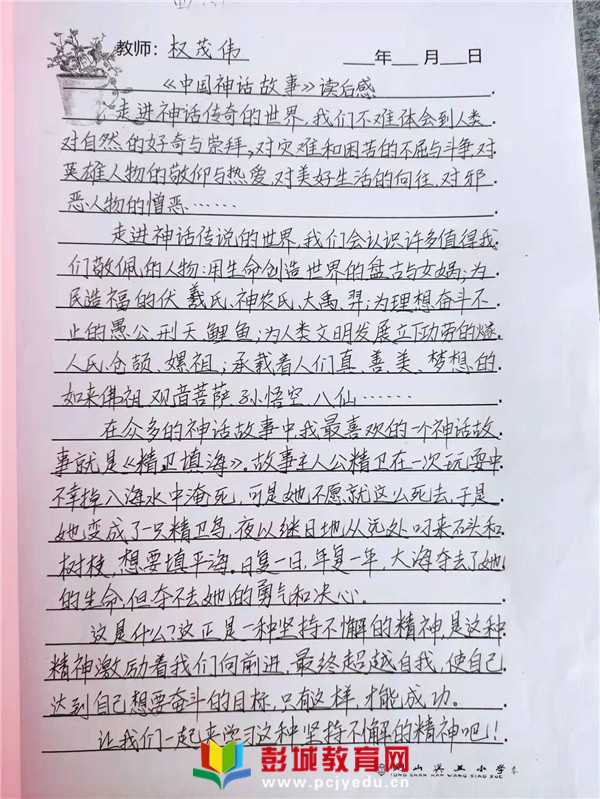 教师：权茂伟 ___年___月___日
《中国神话故事》读后感
走进神话传奇的世界，我们不难体会到人类
对自然的好奇与崇拜，对灾难和困苦的不屈与斗争，对
英雄人物的敬仰与热爱，对美好生活的向往，对邪
恶人物的憎恶……
走进神话传说的世界，我们会认识许多值得我
们敬佩的人物：用生命创造世界的盘古与女娲；为
民造福的伏羲氏、神农氏、大禹、羿；为理想奋斗不
止的愚公、刑天、鲤鱼；为人类文明发展立下功劳的燧
人氏、仓颉、嫘祖；承载着人们真、善、美、梦想的
如来佛祖、观音菩萨、孙悟空、八仙……
在众多的神话故事中，我最喜欢的一个神话故
事就是《精卫填海》。故事主人公精卫在一次玩耍中
不幸掉入海水中淹死，可是她不愿就这么死去，于是
她变成了一只精卫鸟，夜以继日地从远处叼来石头和
树枝，想要填平海。日复一日，年复一年，大海夺去了她
的生命，但夺不去她的勇气和决心。
这是什么？这正是一种坚持不懈的精神，是这种
精神激励着我们向前进，最终超越自我，使自己
达到自己想要奋斗的目标，只有这样，才能成功。
让我们一起来学习这种坚持不懈的精神吧！
彭城教育网
www.pcjyedu.cn
小学
TONG SHAN HAN WANG XIAO XUE